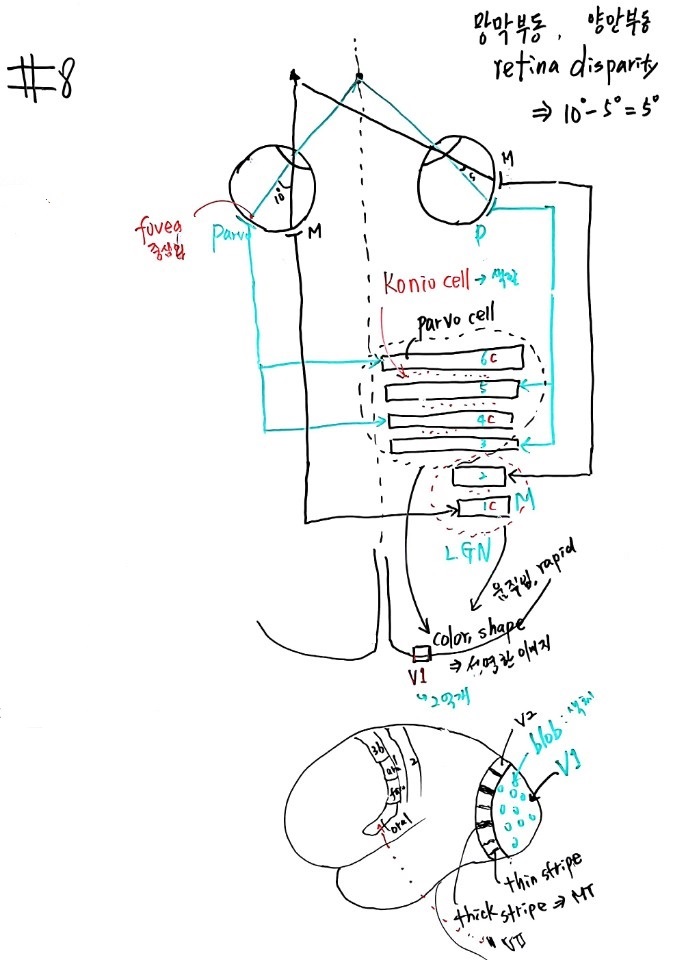 #8
망막부등, 양안부등
retina disparity
⇒ 10° - 5° = 5°
10°
5
M
fovea
중심와
Parvo
M
P
Konio cell → 색깔
parvo cell
6 C
5
4 C
3
2
1 C
M
LGN
움직임, rapid
color, shape
⇒ 선명한 이미지
V1
↳ 2억개
V2
blob : 색채
V1
3b
2
oral
thin stripe
thick stripe ⇒ MT